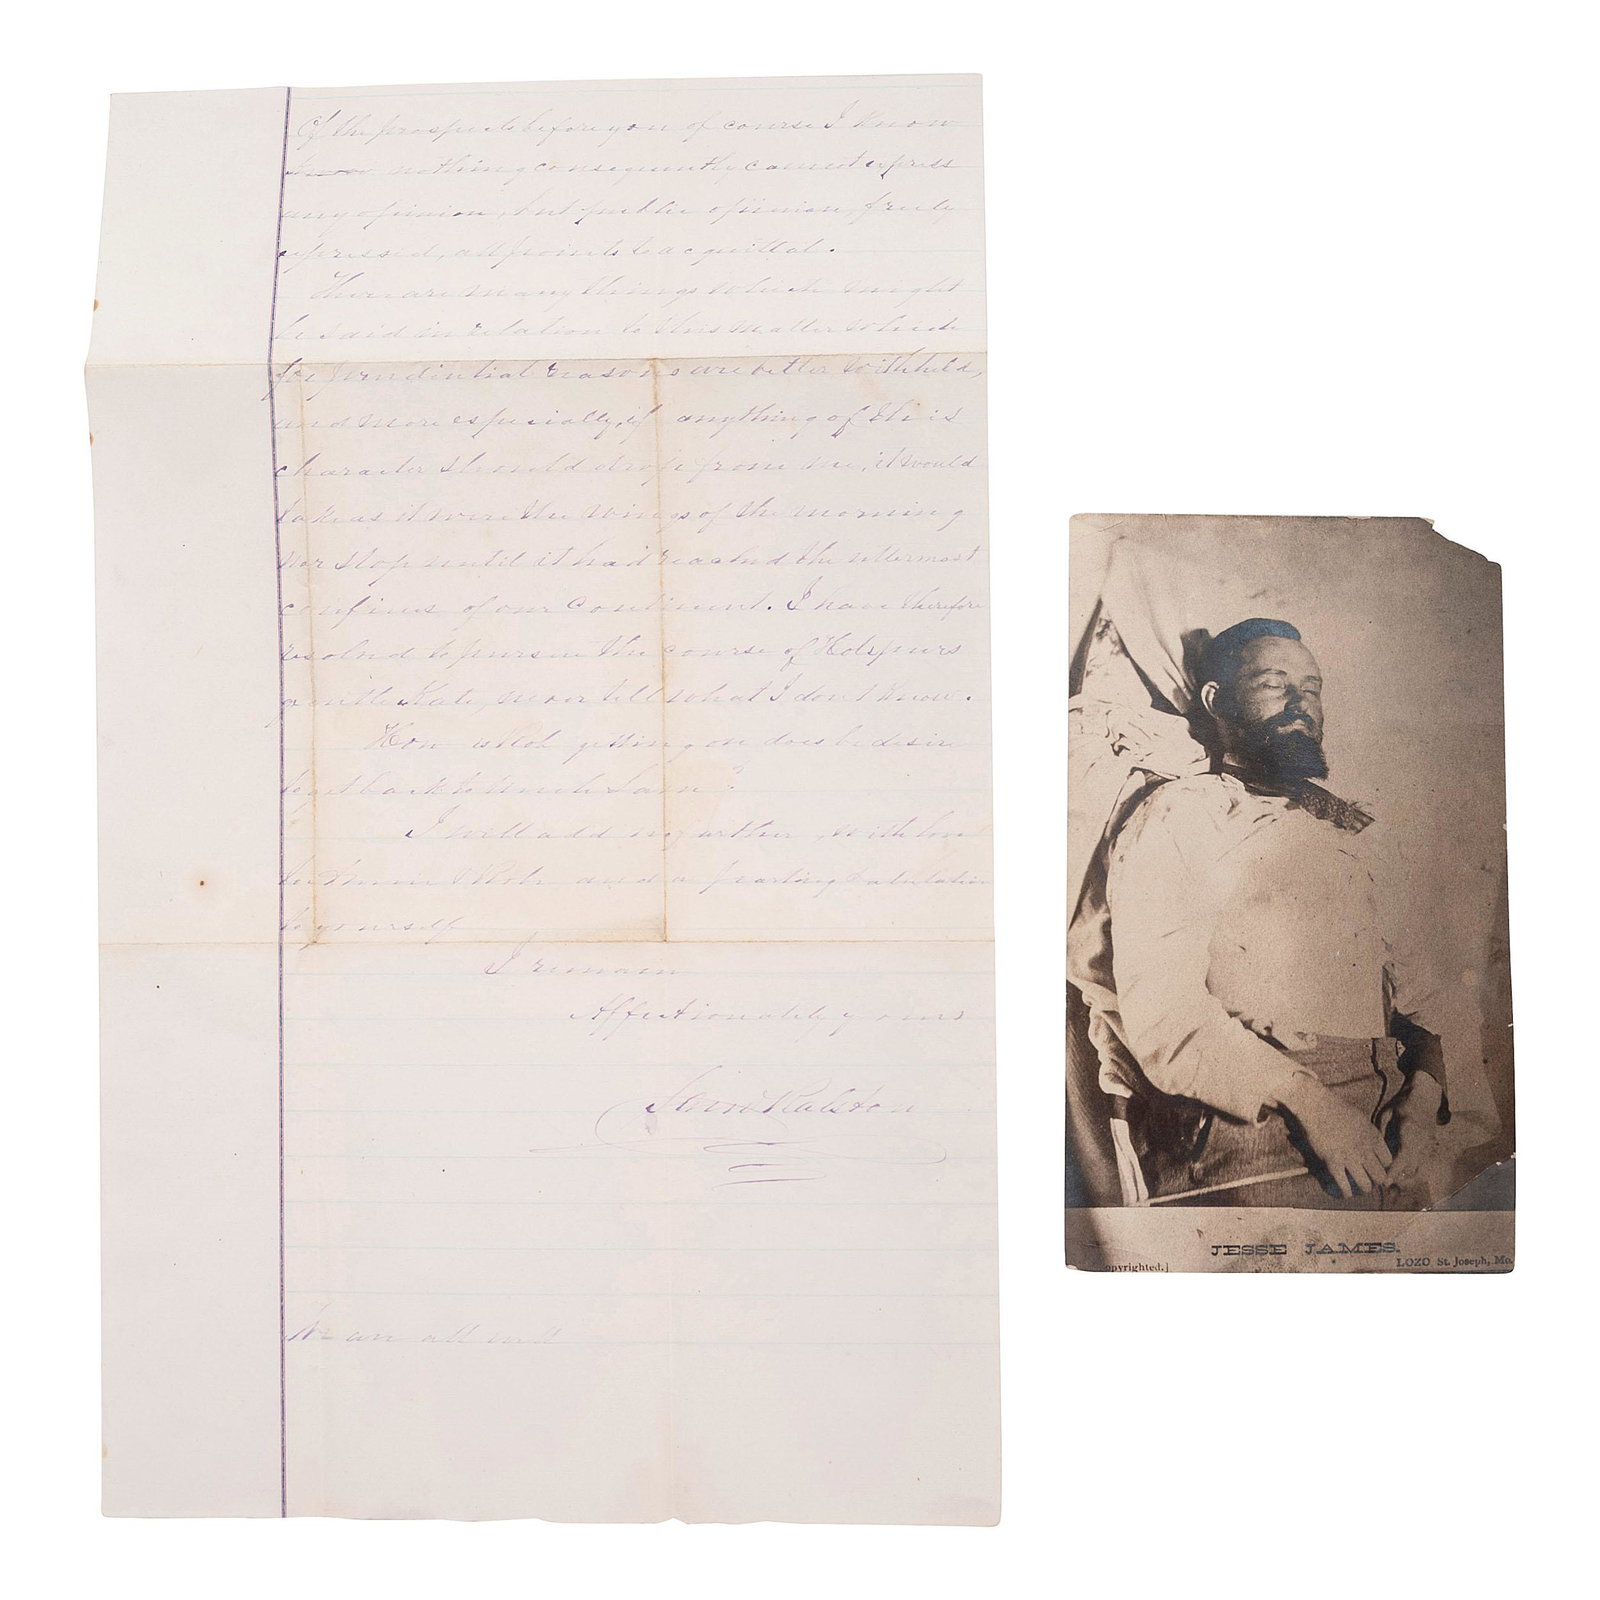 Of the prospects before you of course I know
know nothing consequently cannot express
any opinion, but public opinion, freely
expressed, all points to acquittal.
There are many things which might
be said in relation to this matter which
for prudential reasons are better withheld,
and more especially, if anything of the is
character should drop from me, it would
take as it were the wings of the morning
nor stop until it had reached the uttermost
confines of our Continent. I have therefore
resolved to pursue the course of Hotspurs
gentle Kate, never tell what I dont know.
How is Rob getting on does he desire
to get back to Uncle Sam?
I will add no further, with love
to Annie & Rob and a parting salutation
to yourself
I remain
Affectionately yours
Ralston
We are all well
JESSE JAMES.
opyrighted.]
LOZO St. Joseph, Mo.